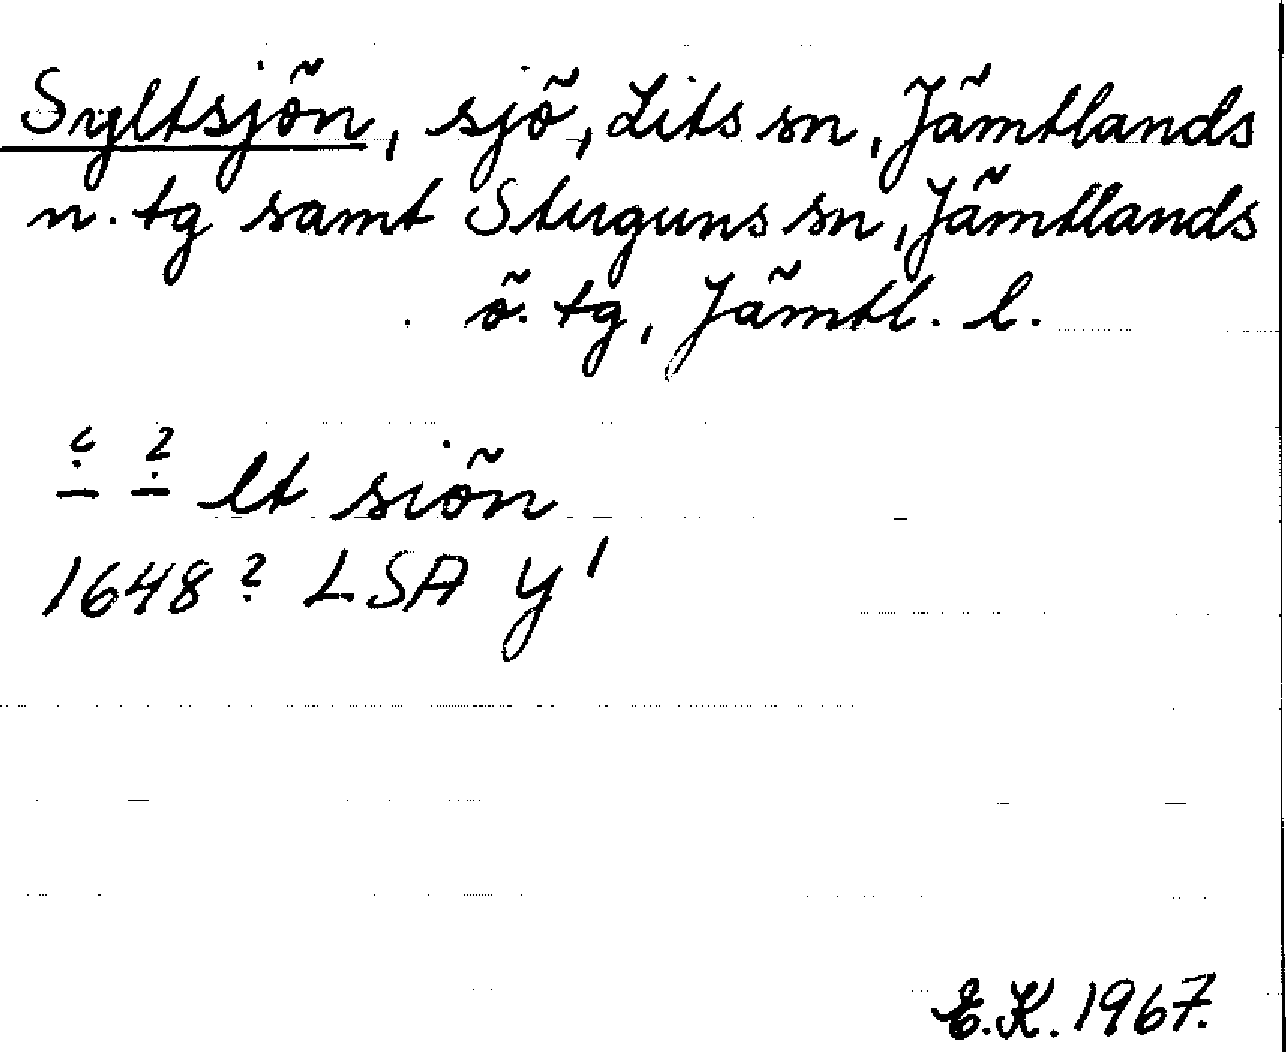 Syltsjön, sjö, Lits sn, Jämtlands
n. tg samt Stuguns sn, Jämtlands
ö. tg, Jämtl. l.
– – lt siön
1648? LSA Y 1
E.K. 1967.